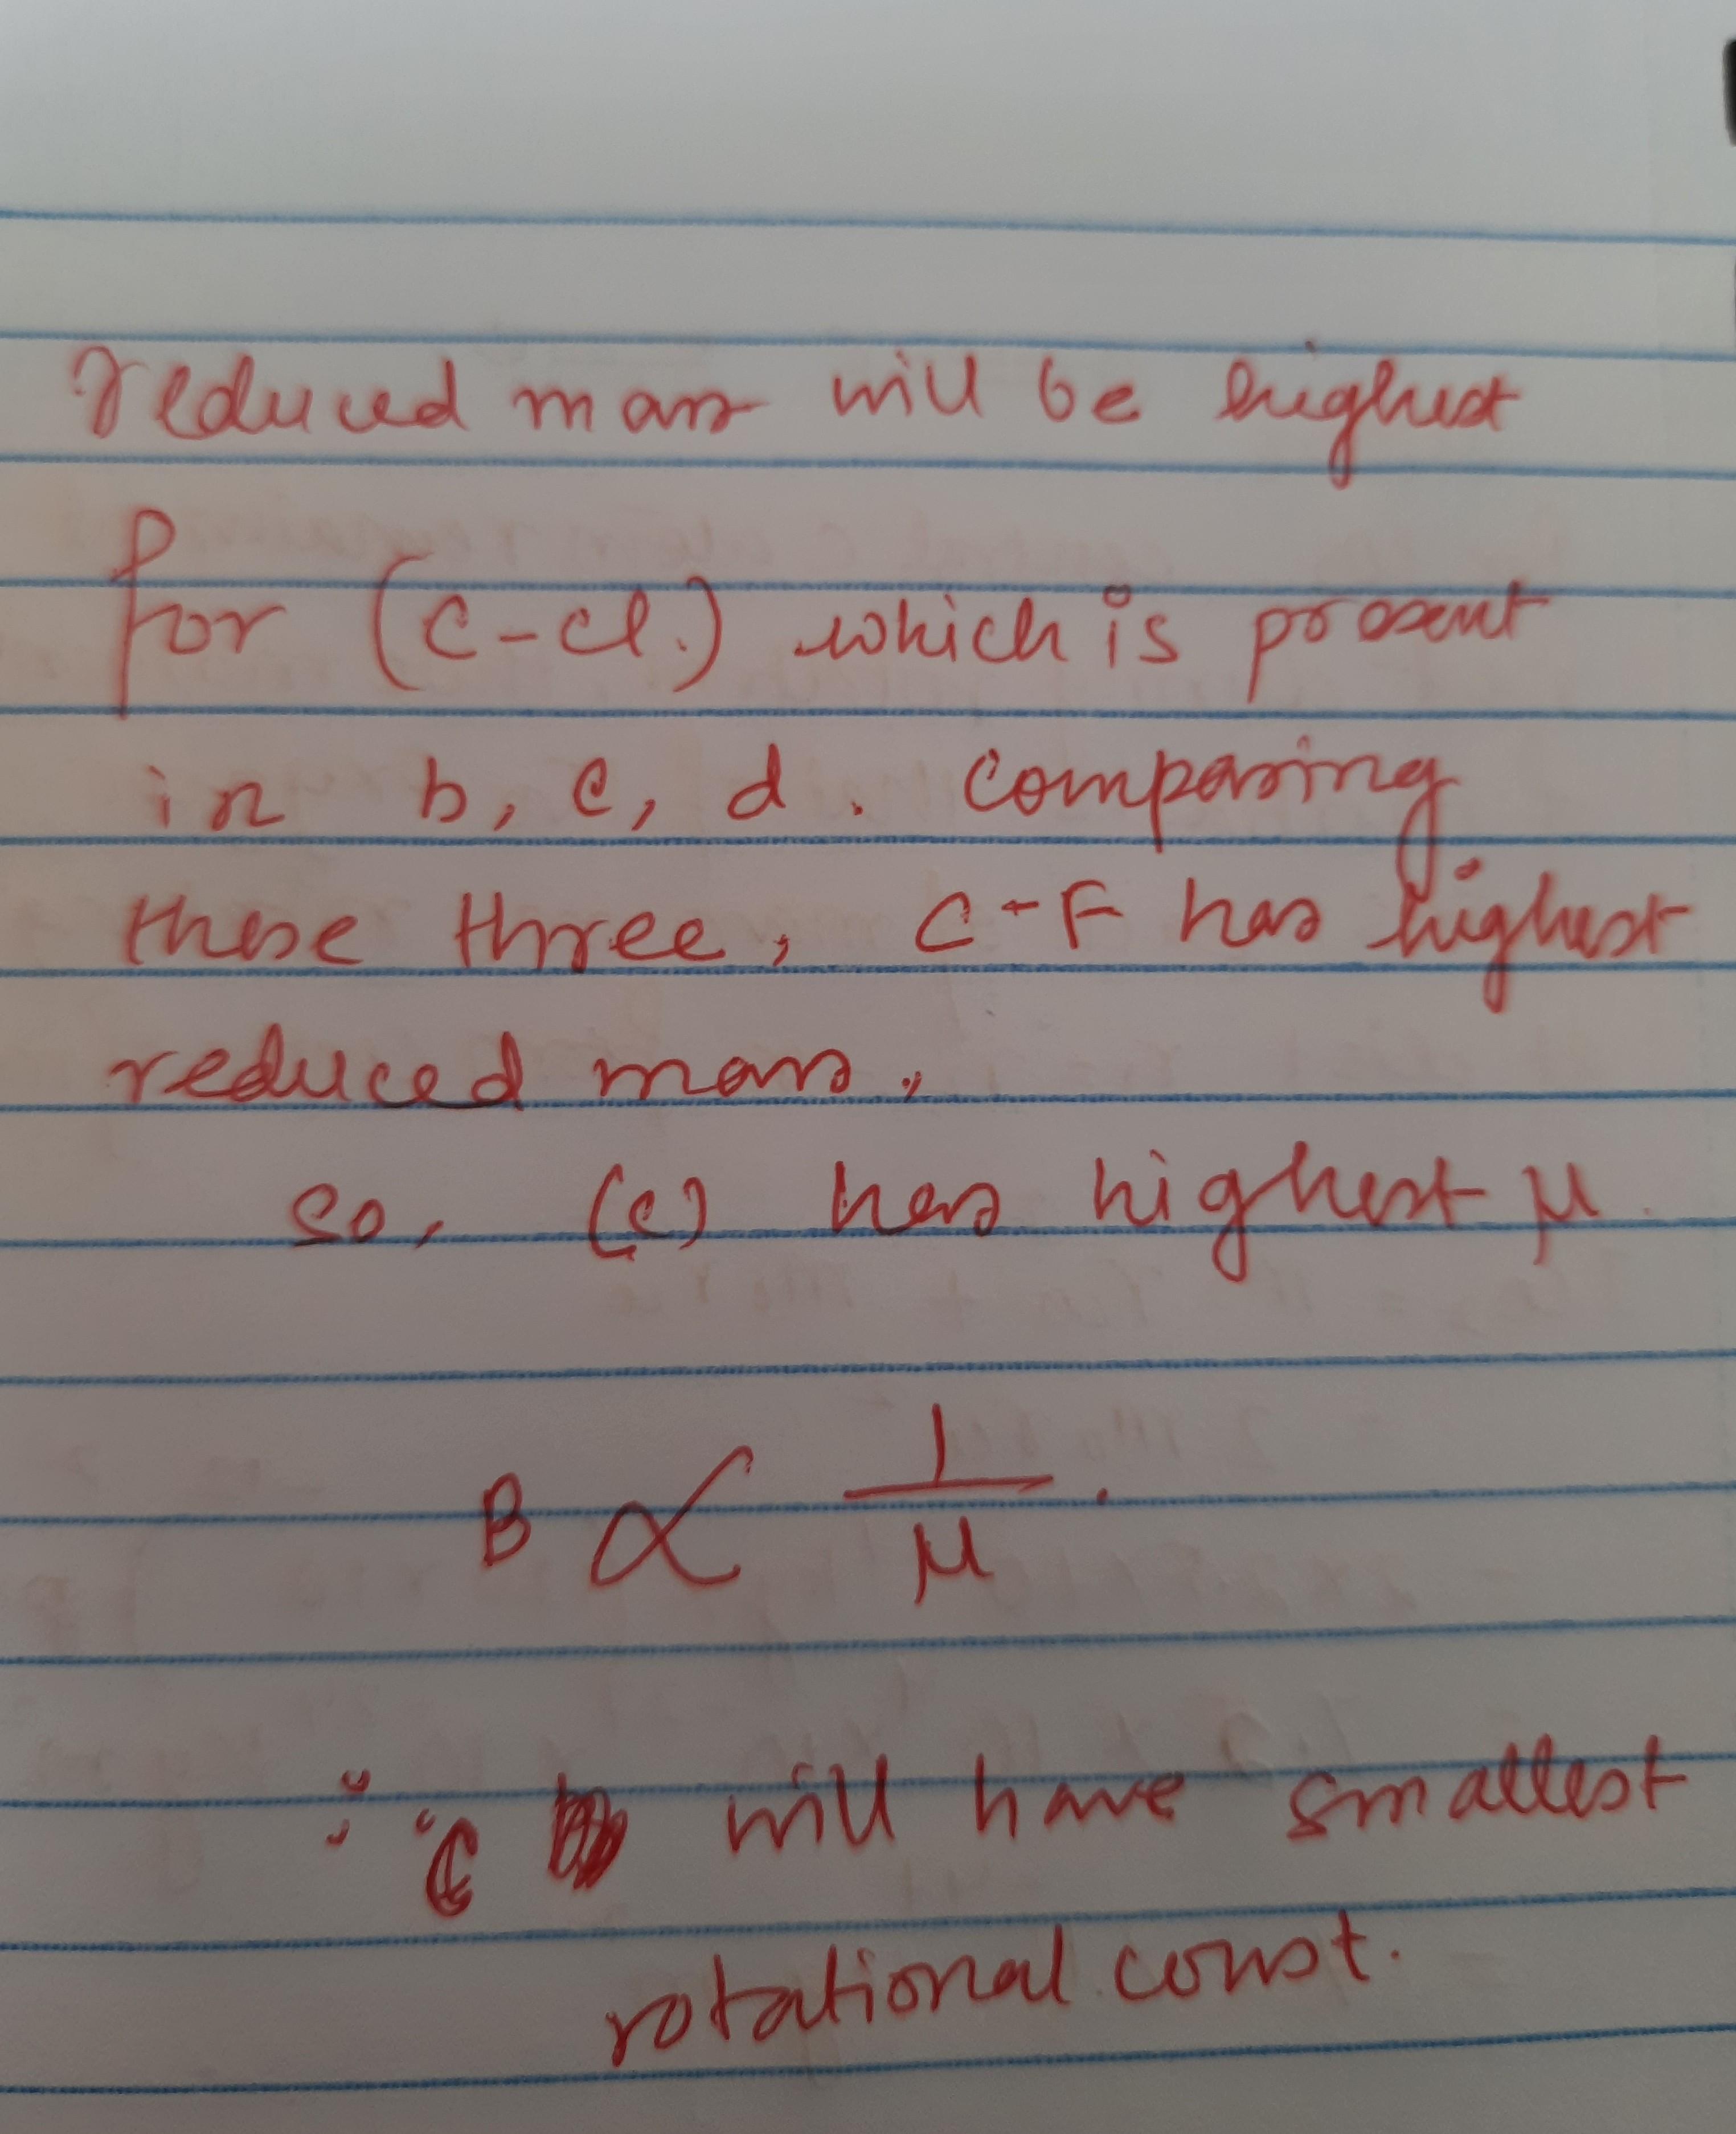 reduced mass will be highest
for (C-Cl.) which is present
in b, c, d . Comparing
these three, C-F has highest
reduced mass.
so, (c) has highest μ.
B ∝ 1/μ.
∴ C will have smallest
rotational const.